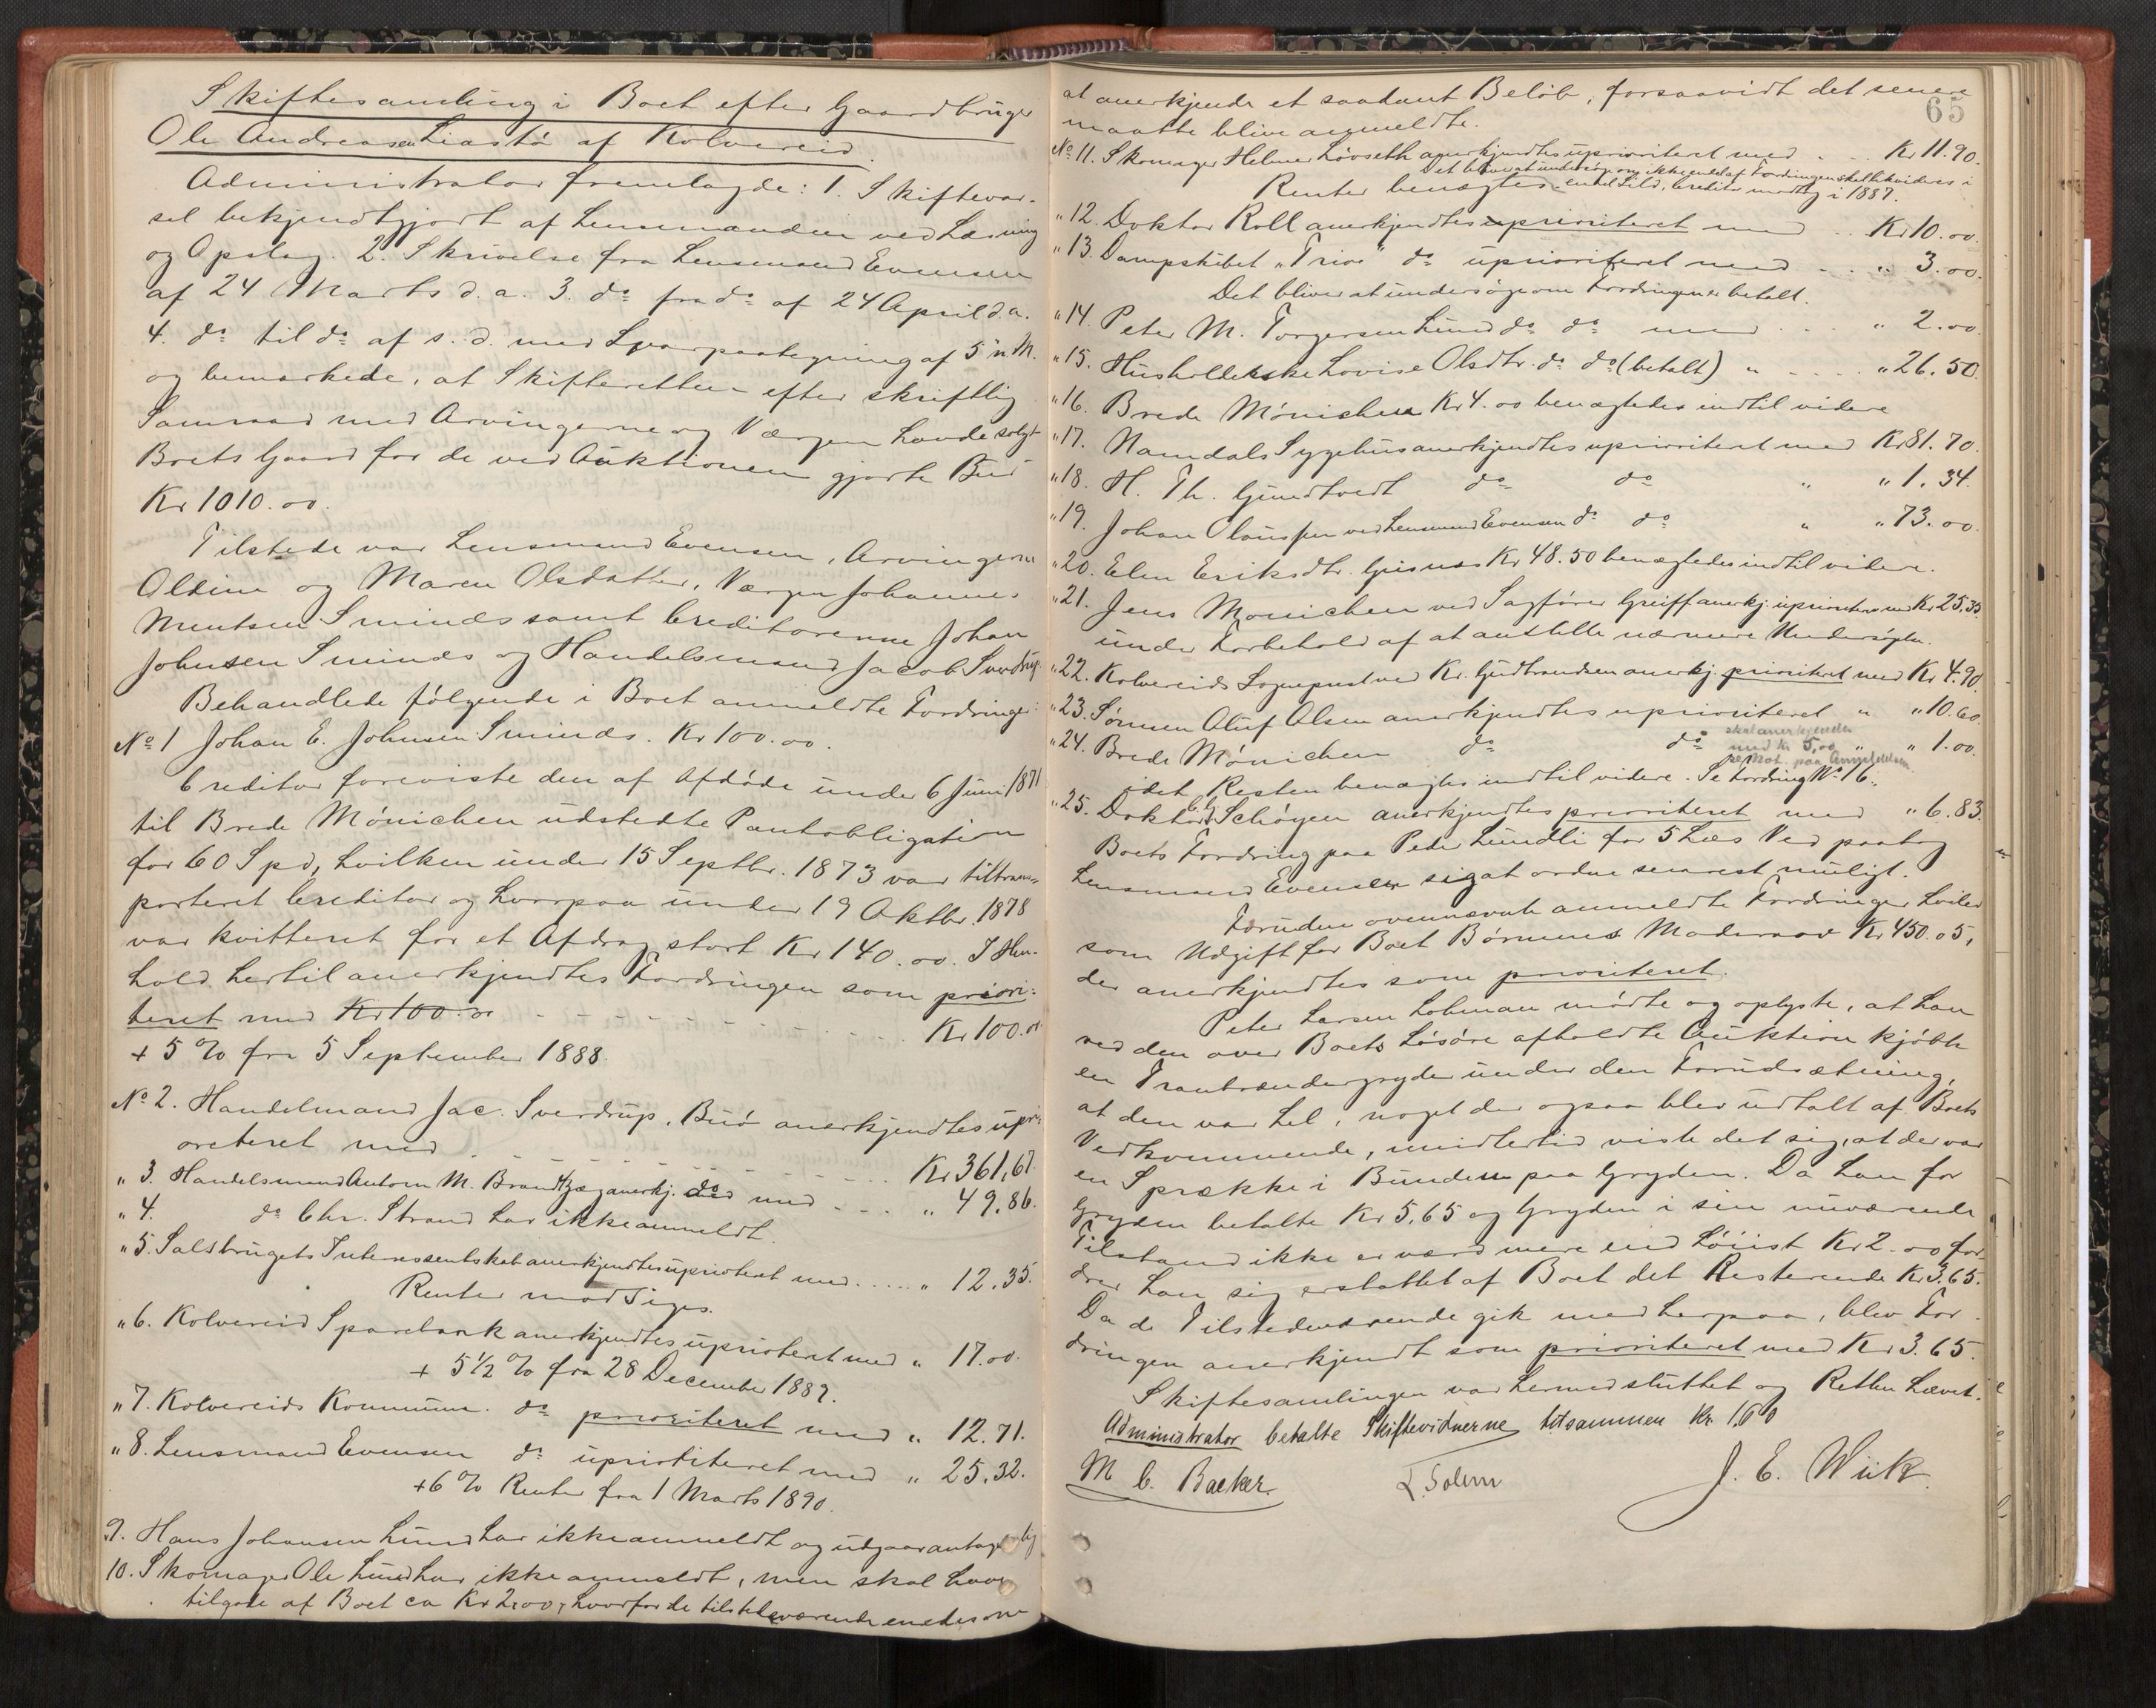 Skiftesamling i Boet efter Gaardbruger
Ole Andreassen Liastø af Kolvereid.
Administrator fremlagde: 1. Skiftevar-
sel bekjendtgjort af Lensmanden ved Læsning
og Opslag. 2. Skrivelse fra Lensmand Evensen
af 24 Marts d.a. 3. do fra do af 24 April d.a.
4. do til do af s.d. med Svarpaategning af 5 n.M.
og bemærkede, at Skifteretten efter skriftlig
Samraad med Arvingerne og Værgen havde solgt
Boets Gaard for de ved Auktionen gjorte Bud
Kr 1010.00.
Tilstede var Lensmand Evensen, Arvingerne
Oldine og Maren Olsdatter, Værgen Johannes
Mentsen Sminds samt Creditorerne Johan
Johnsen Sminds og Handelsmand Jacob Sverdrup.
Behandlede følgende i Boet anmeldte Fordringer:
No 1 Johan E. Johnsen Sminds. Kr 100.00.
Creditor foreviste den af Afdøde under 6 Juni 1871
til Brede Mønichen udstedte Pantobligation
for 60 Spd, hvilken under 15 Septbr. 1873 var tiltrans-
porteret Creditor og hvorpaa under 19 Oktbr. 1878
var kvitteret for et Afdrag stort Kr 140.00. I Hen-
hold hertil anerkjendtes Fordringen som priori-
teret med Kr 100.00 Kr 100.00
+ 5 % fra 5 September 1888.
No 2. Handelmand Jac. Sverdrup, Buø anerkjendtes upri-
oriteret med Kr 361,67.
" 3. Handelsmand Antorn M. Brandtzæg anerkj. do med " 49.86.
" 4. do Chr. Strand har ikke anmeldt.
" 5. Salsbrugets Interessentskab anerkjendtes uprioteret med " 12.35.
Renter modsiges.
" 6. Kolvereid Sparebank anerkjendtes uprioteret med " 17.00.
+ 5 1/2 % fra 28 December 1889.
" 7. Kolvereids Kommune do prioriteret med " 12.71.
" 8. Lensmand Evensen do uprioriteret med " 25.32.
+ 6 % Renter fra 1 Marts 1890.
9. Hans Johansen Lund har ikke anmeldt og udgaar antagelig
10. Skomager Ole Lund har ikke anmeldt, men skal have
tilgode af Boet ca Kr 2,00, hvorfor de tilstedeværende enedes om
65
at anerkjende et saadant Beløb, forsaavidt det senere
maatte blive anmeldte.
No 11. Skomager Helmer Løvseth anerkjendtes uprioriteret med Kr 11.90.
Det bliver at undersøge om ikke endel af Fordringen skal likvideres i
Renter benægtes. endel Sild, Creditor modtog i 1887.
" 12. Doktor Roll anerkjendtes uprioriteret med Kr 10.00.
" 13. Dampskibet "Trio" do uprioriteret med " 3.00.
Det bliver at undersøge om Fordringen er betalt.
" 14. Peter M. Torgersen Lund do do med " 2.00.
" 15. Husholderske Lovise Olsdtr. do do (betalt) " " 26.50.
" 16. Brede Mønichen Kr 4.00 benægtedes indtil videre
" 17. Namdals Sygehus anerkjendtes uprioriteret med Kr 81.70.
" 18. H. Th. Gundtvedt do do " " 1.34.
" 19. Johan Olaussen ved Lensmand Evensen do do " " 73.00.
" 20. Elen Eriksdtr. Geisnes Kr 48.50 benægtedes indtil videre.
" 21. Jens Monichen ved Sagfører Greiff anerkj. uprioriteret med Kr 25,33
under Forbehold af at anstille nærmere Undersøgelse.
" 22. Kolvereids Sognepræst ved Kr. Gudbrandsen anerkj. prioriteret med Kr 4.90
" 23. Sønnen Oluf Olsen anerkjendtes uprioriteret " " 10.60.
" 24. Brede Mønichen do do " " 1.00.
skal anerkjendes
med Kr 5,00
se Not. paa Anmeldelsen
idet Resten benægtes indtil videre. Se Fordring No 16.
" 25. Doktor Schøyen anerkjendtes prioriteret med " 6.83.
Boets Fordring paa Peder Lundli for 5 Læs Ved paatog
Lensmand Evensen sig at ordne snarest muligt.
Foruden ovennævnte anmeldte Fordringer hviler
som Udgift for Boet Børnenes Moderarv Kr 450.05,
der anerkjendtes som prioriteret.
Peter Larsen Lohman mødte og oplyste, at han
ved den over Boets Løsøre afholdte Auktion kjøbte
en Tranbrændergryde under den Forudsætning,
at den var hel, noget der ogsaa blev udtalt af Boets
Vedkommende, imidlertid viste det sig, at der var
en Sprække i Bunden paa Gryden. Da han for
Gryden betalte Kr 5,65 og Gryden i sin nuværende
Tilstand ikke er værd mere end høiist Kr 2.00 for-
drer han sig erstattet af Boet det Resterende Kr 3.65.
Da de Tilstedeværende gik med herpaa, blev For-
dringen anerkjendt som prioriteret med Kr 3.65.
Skiftesamlingen var hermed sluttet og Retten hævet.
Administrator betalte Skiftevidnerne tilsammen Kr. 1,60
M C. Backer. L. Solem J. E. Wiik